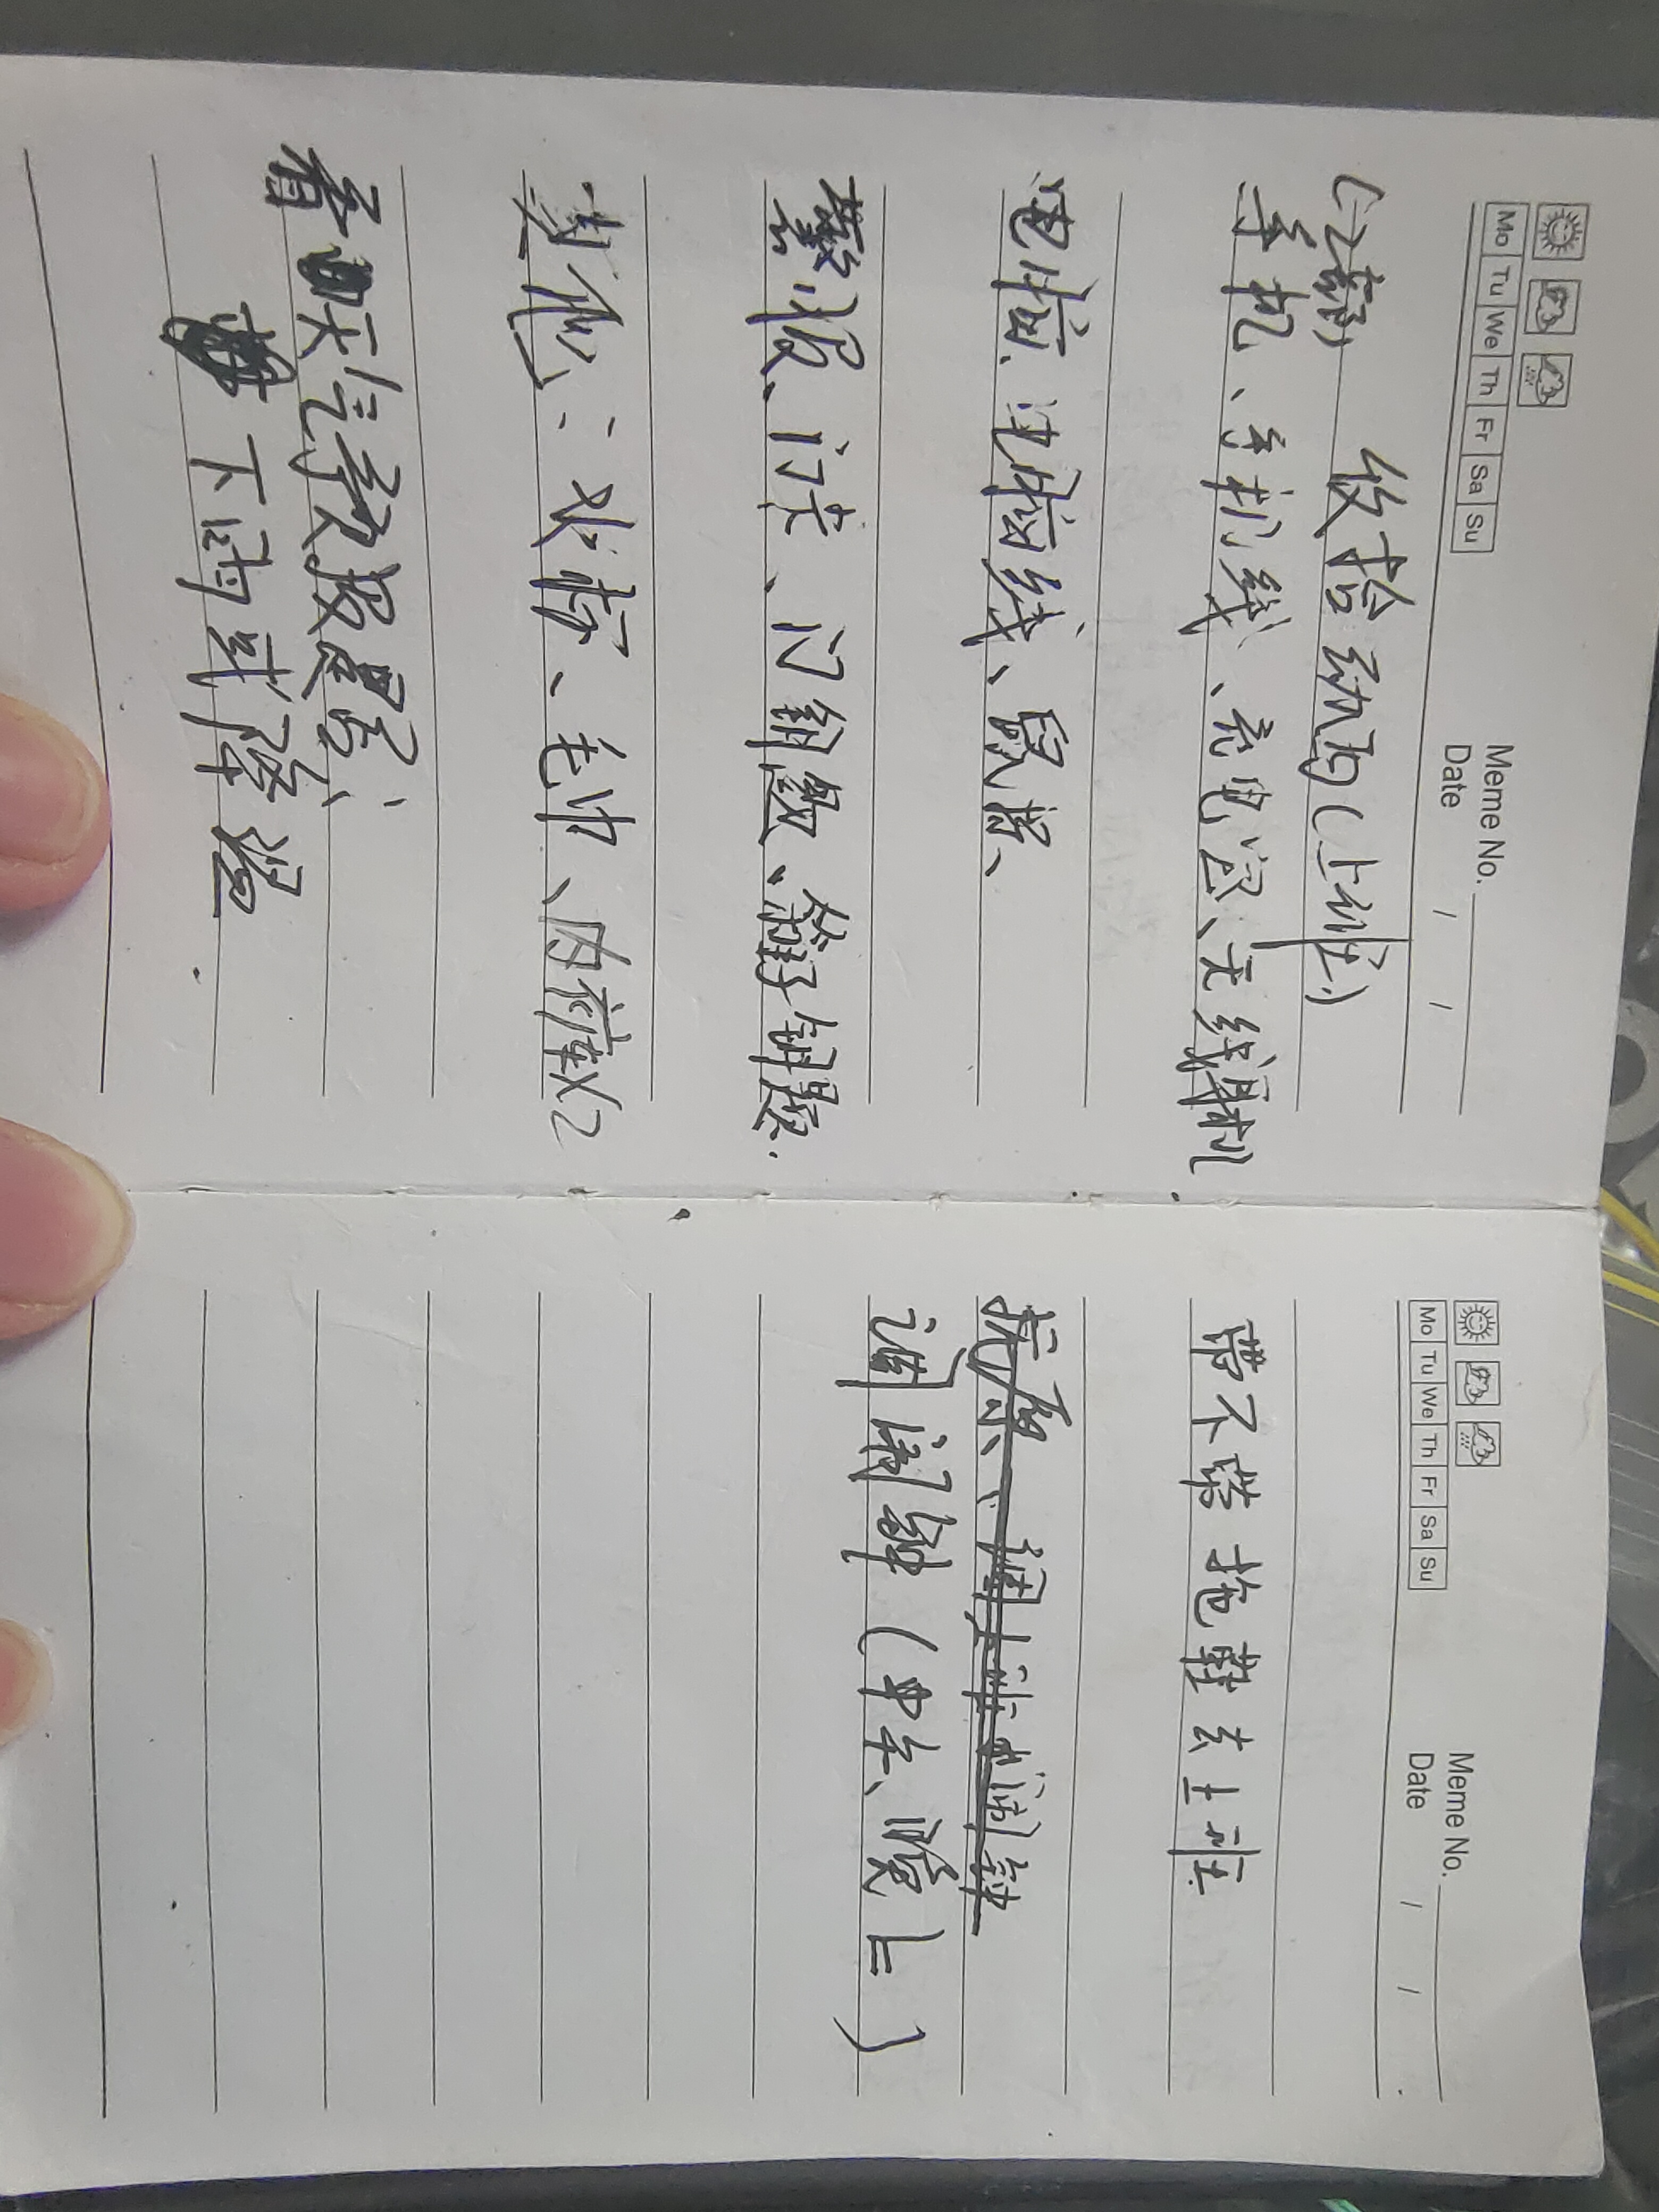 Mo Tu We Th Fr Sa Su
Meme No.
Date / /
收拾动西(上班)
手机、手机线、充电宝、无线耳机
电脑、电脑线、鼠标、
警服、门卡、门钥匙、箱子钥匙.
其他:水杯、毛巾、内裤X2
看天气预报是否:
下雨或降温
Mo Tu We Th Fr Sa Su
Meme No.
Date / /
带不带拖鞋去上班
抗原、调上班闹钟
调闹钟(中午、晚上)